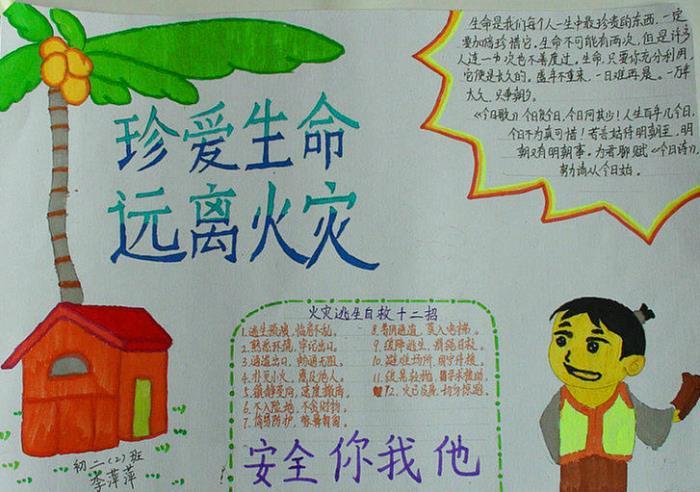 珍爱生命
远离火灾
生命是我们每个人一生中最珍贵的东西，一定
要加倍珍惜它。生命不可能有两次，但是许多
人连一次也不善度过。生命，只要你充分利用，
它便是长久的。盛年不重来，一日难再晨。一万年
太久，只争朝夕。
《今日歌》今日复今日，今日何其少！人生百年几今日，
今日不为真可惜！若言姑待明朝至，明
朝又有明朝事。为君聊赋《今日诗》，
努力请从今日始。
火灾逃生自救十二招
1、逃生预演，临危不乱。
2、熟悉环境，牢记出口。
3、通道出口，畅通无阻。
4、扑灭小火，惠及他人。
5、镇静辨向，迅速撤离。
6、不入险地，不贪财物。
7、简易防护，
8、善用通道，莫入电梯。
9、缓降逃生，滑绳自救。
10、避难场所，固守待援。
11、缓晃轻抛，寻求援助。
12、火已及身，切勿惊跑。
安全 你 我 他
初二（2）班
李萍萍